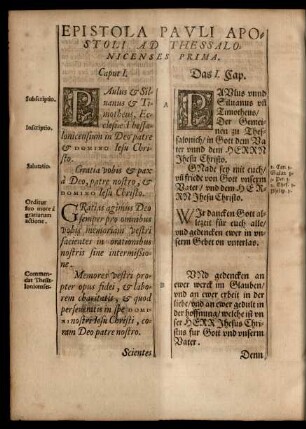 EPISTOLA PAVLI APO-
STOLI AD THESSALO-
NICENSES PRIMA.
Caput I.
Subscriptio.
PAulus & Sil-
uanus & Ti-
motheus, Ec-
Inscriptio.
clesiæ Thessa-
lonicensium in Deo patre
& DOMINO Iesu Chri-
sto.
Salutatio.
Gratia vobis & pax
à Deo, patre nostro, &
DOMINO Iesu Christo.
GRatias agimus Deo
semper pro omnibus
vobis, memoriam vestri
facientes in orationibus
nostris sine intermissio-
ne.
Memores vestri pro-
pter opus fidei, & labo-
rem charitatis, & quod
perseueritis in spe DOMI-
NI nostri Iesu Christi, co-
ram Deo patre nostro.
Scientes
Das I. Cap.
PAVlus vnnd
Siluanus vñ
Timotheus/
Der Gemei-
nen zu Thes-
salonich/ in Gott dem Va-
ter vnnd dem HERRN
Jhesu Christo.
GNade sey mit euch/
vñ friede von Gott vnserm
Vater/ vnd dem HER-
RN Jhesu Christo.
WIr dancken Gott al-
lezeit für euch alle/
vnd gedencken ewer in vn-
serm Gebet on vnterlas.
VNd gedencken an
ewer werck im Glauben/
vnd an ewer erbeit in der
liebe/ vnd an ewer gedult in
der hoffnung/ welche ist vn-
ser HERR Jhesus Chri-
stus fur Gott vnd vnserm
Vater.
Denn